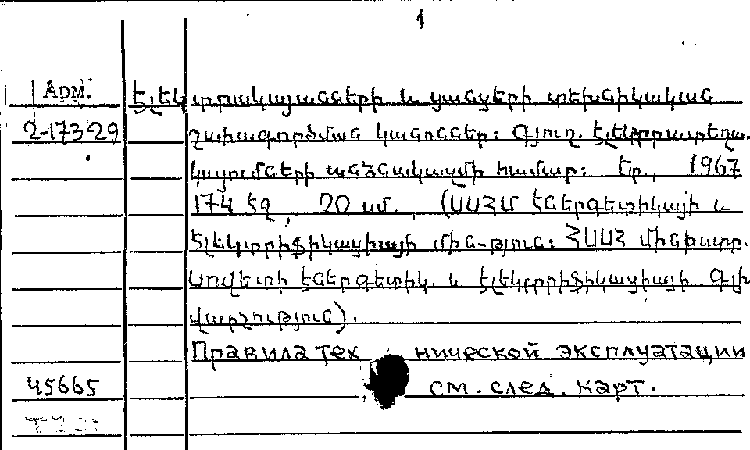 1
АРМ. Էլեկտրակայանների և ցանցերի տեխնիկական
2-173-29 շահագործման կանոններ: Գյուղ. էլեկտրատեղա-
կայումների անձնակազմի համար: Եր., 1967
174 էջ, 20 սմ., (ՍՍՀՄ էներգետիկայի և
էլեկտրիֆիկացիայի մին-թյուն: ՀՍՍՀ Մինիստր.
Սովետի էներգետիկ. և էլեկտրիֆիկացիայի Գլխ
վարչություն).
Правила тех нической эксплуатации
45665 см. след. карт.